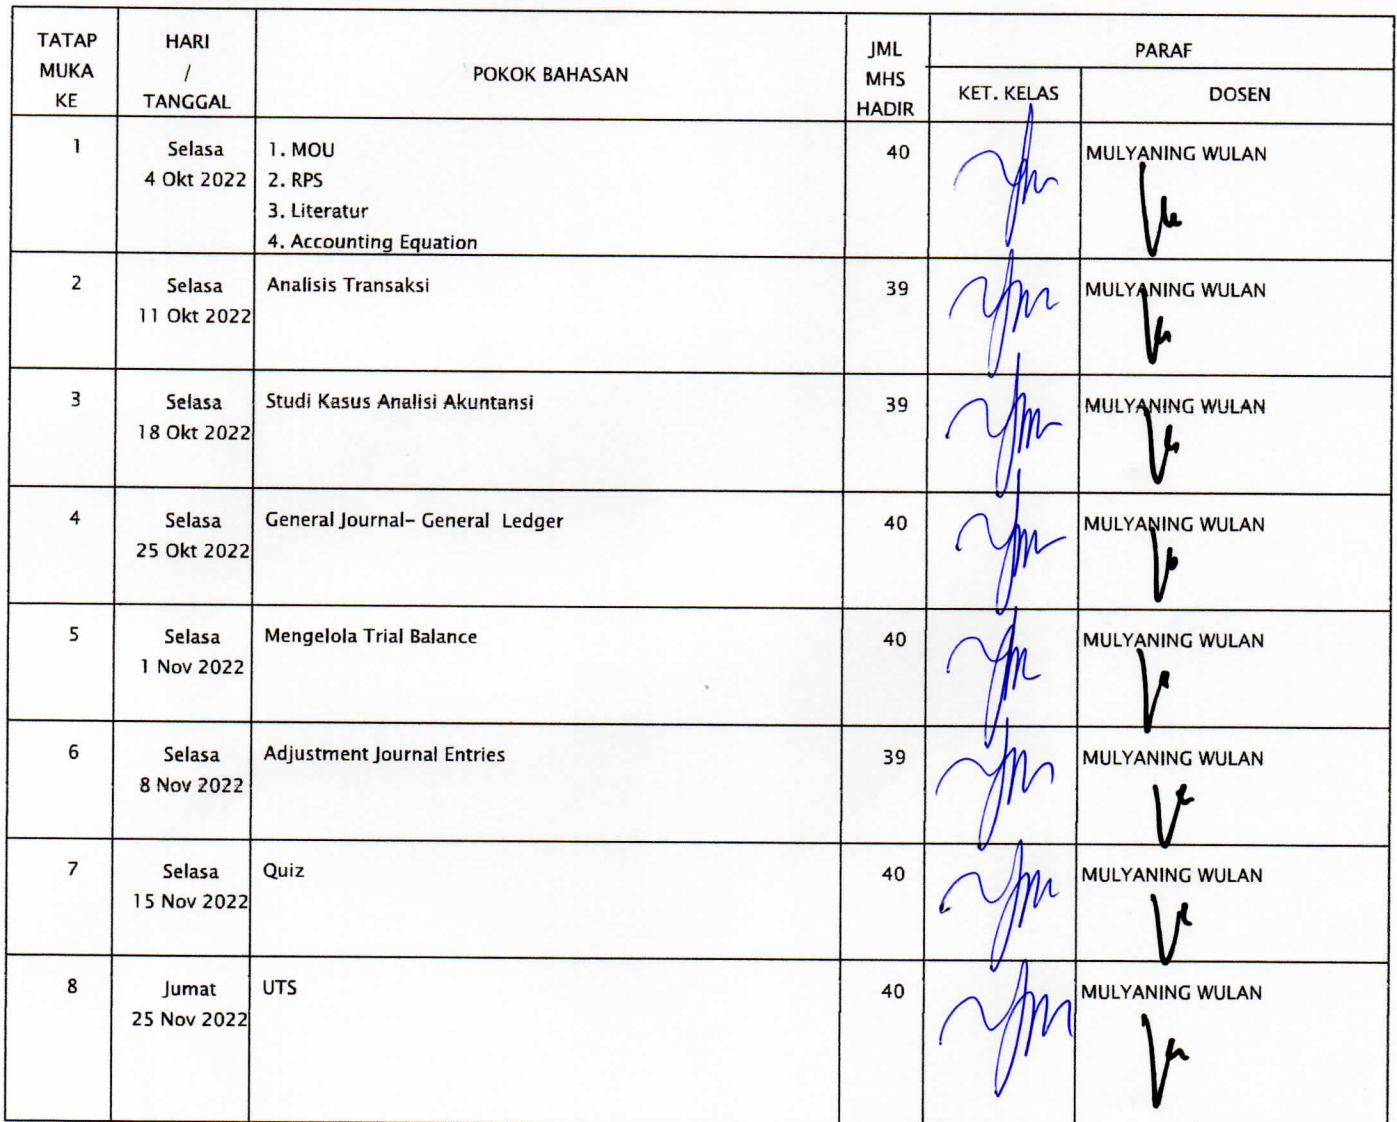 TATAP MUKA KE
HARI / TANGGAL
POKOK BAHASAN
JML MHS HADIR
PARAF
KET. KELAS
DOSEN
1
Selasa
4 Okt 2022
1. MOU
2. RPS
3. Literatur
4. Accounting Equation
40
MULYANING WULAN
2
Selasa
11 Okt 2022
Analisis Transaksi
39
MULYANING WULAN
3
Selasa
18 Okt 2022
Studi Kasus Analisi Akuntansi
39
MULYANING WULAN
4
Selasa
25 Okt 2022
General Journal- General Ledger
40
MULYANING WULAN
5
Selasa
1 Nov 2022
Mengelola Trial Balance
40
MULYANING WULAN
6
Selasa
8 Nov 2022
Adjustment Journal Entries
39
MULYANING WULAN
7
Selasa
15 Nov 2022
Quiz
40
MULYANING WULAN
8
Jumat
25 Nov 2022
UTS
40
MULYANING WULAN